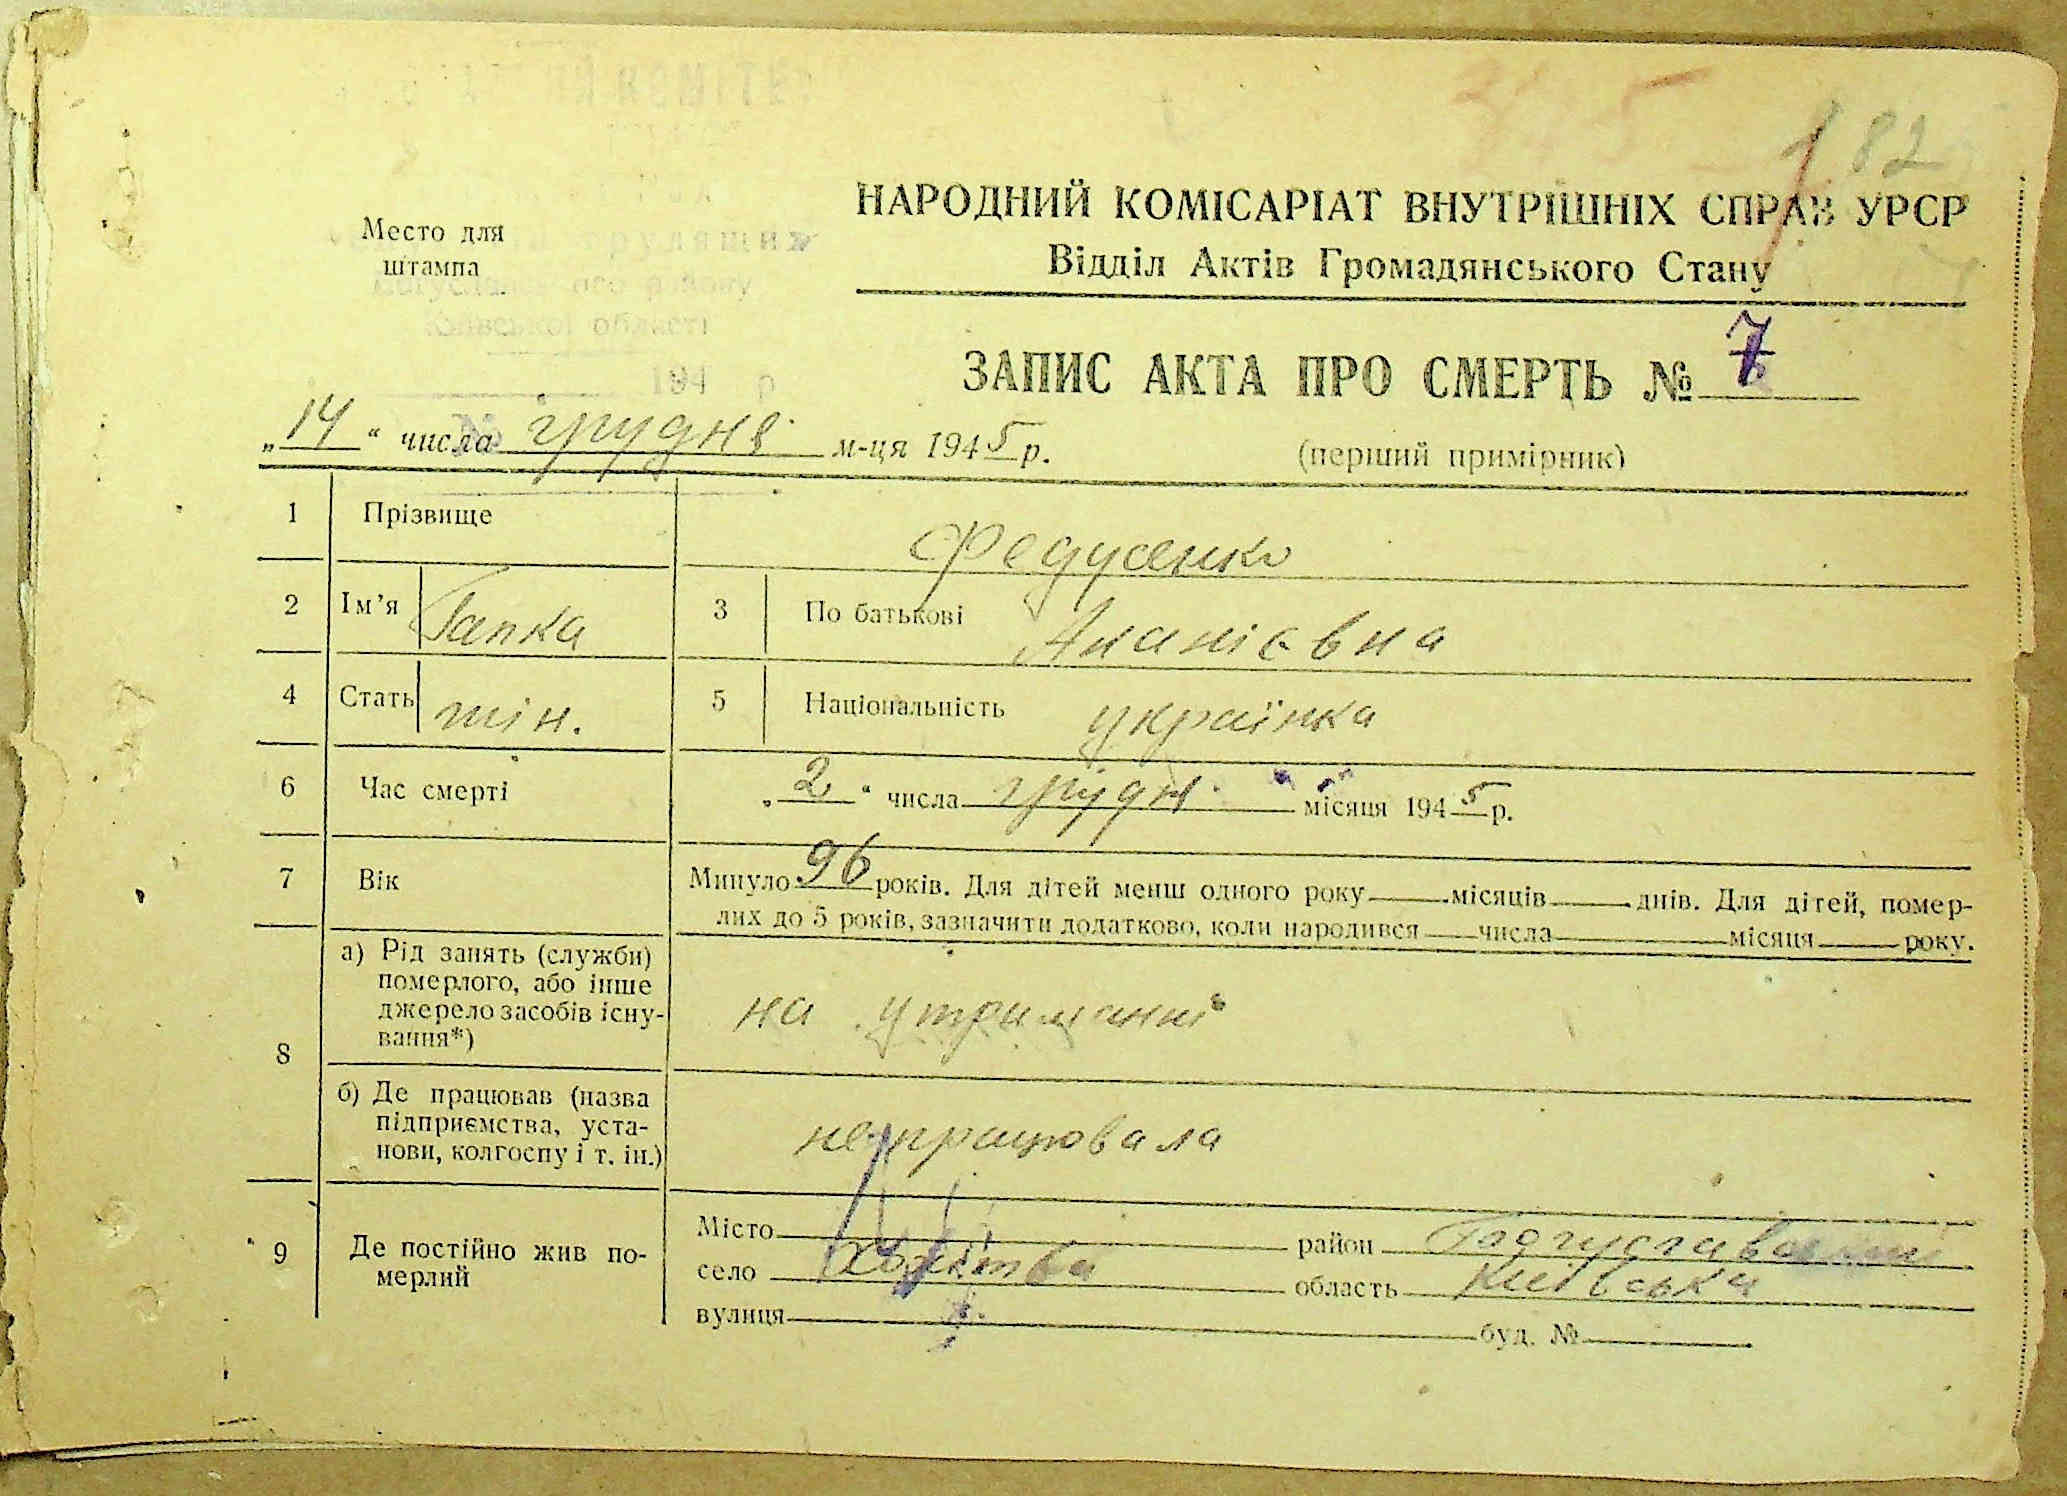 182
Место для
штампа
НАРОДНИЙ КОМІСАРІАТ ВНУТРІШНІХ СПРАВ УРСР
Відділ Актів Громадянського Стану
Київської області
194 р
ЗАПИС АКТА ПРО СМЕРТЬ № 7
„14“ числа грудня м-ця 1945 р.
(перший примірник)
1 Прізвище Федусенко
2 Ім’я Гапка 3 По батькові Ананієвна
4 Стать жін. 5 Національність українка
6 Час смерті „2“ числа грудня місяця 1945 р.
7 Вік Минуло 96 років. Для дітей менш одного року місяців днів. Для дітей, помер-
лих до 5 років, зазначити додатково, коли народився числа місяця року.
8 а) Рід занять (служби)
померлого, або інше
джерело засобів існу-
вання*)
на утриманні
б) Де працював (назва
підприємства, уста-
нови, колгоспу і т. ін.)
не працювала
9 Де постійно жив по-
мерлий
Місто район
село область Київська
вулиця буд. №